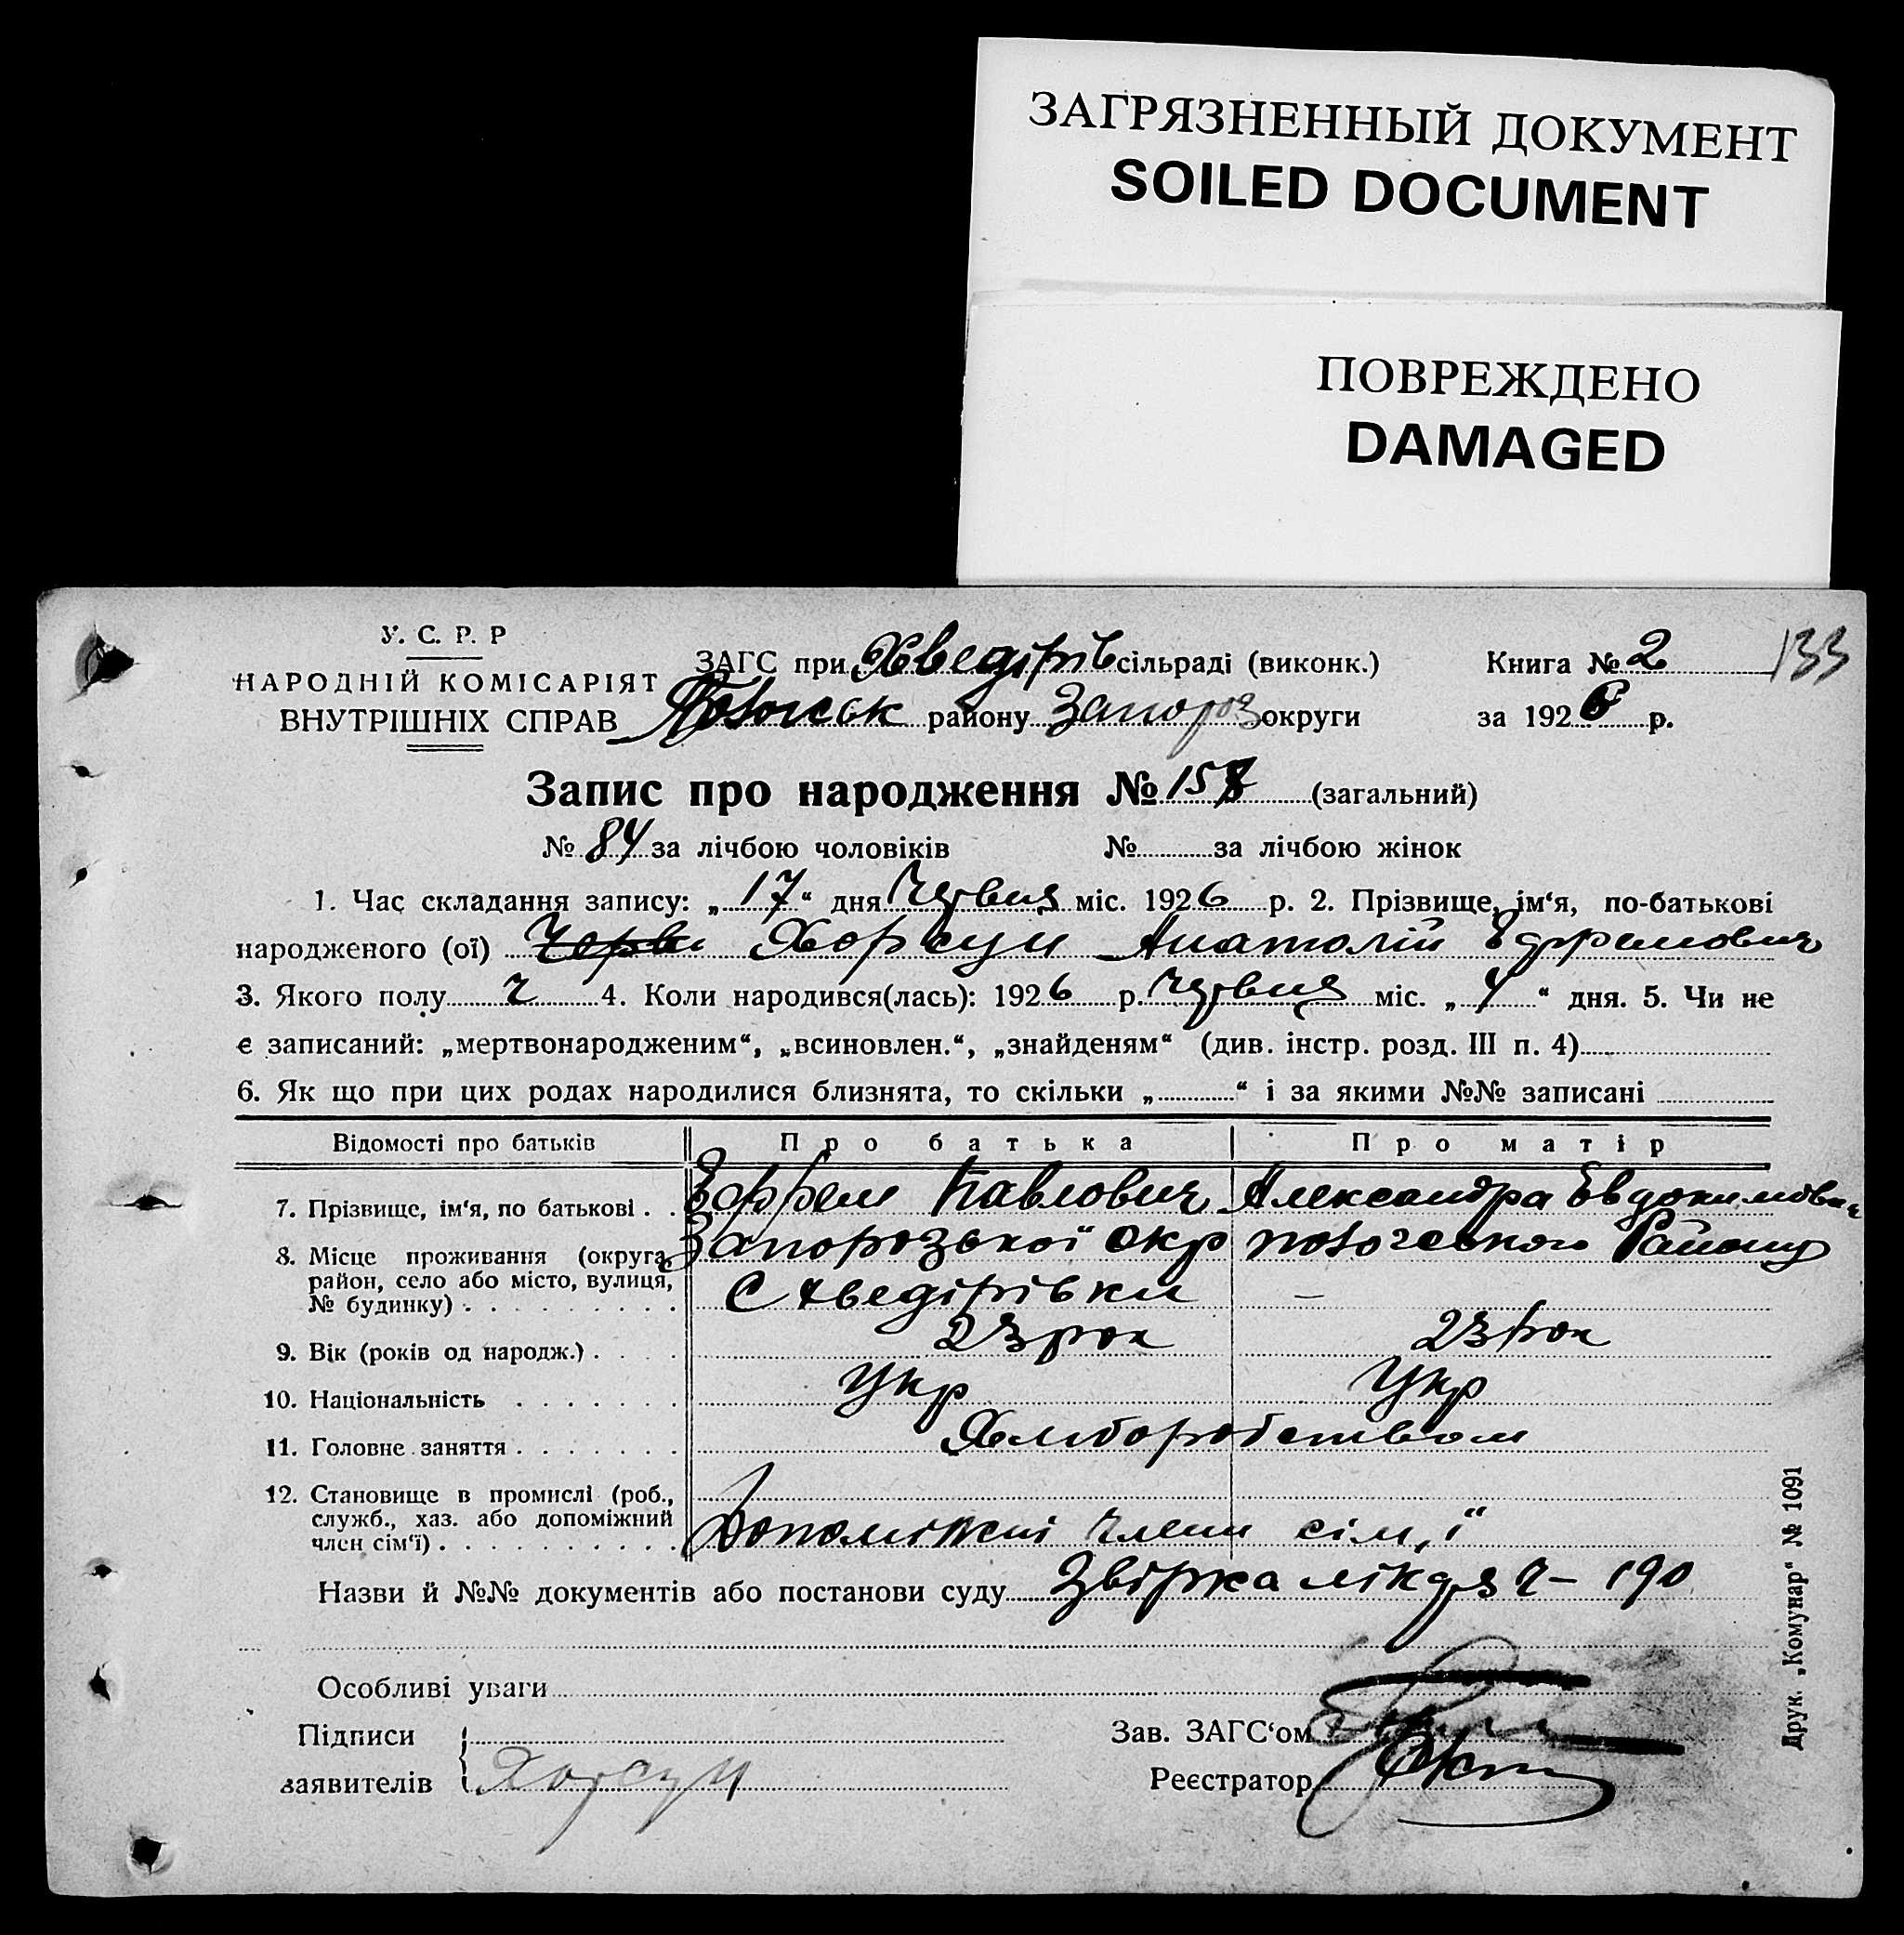 ЗАГРЯЗНЕННЫЙ ДОКУМЕНТ
SOILED DOCUMENT
ПОВРЕЖДЕНО
DAMAGED
133
У. С. Р. Р
НАРОДНІЙ КОМІСАРІЯТ
ВНУТРІШНІХ СПРАВ
ЗАГС при Хведірів сільраді (виконк.) Книга № 2
району Запороз округи за 1926 р.
Запис про народження № 158 (загальний)
№ 84 за лічбою чоловіків № за лічбою жінок
1. Час складання запису: „17“ дня Червня міс. 1926 р. 2. Прізвище, ім‘я, по-батькові
народженого (ої) Хорсун Анатолій Ефремович
3. Якого полу ч 4. Коли народився(лась): 1926 р. червня міс. „4“ дня. 5. Чи не
є записаний: „мертвонародженим“, „всиновлен.“, „знайденям“ (див. інстр. розд. III п. 4)
6. Як що при цих родах народилися близнята, то скільки „ “ і за якими №№ записані
Відомості про батьків Про батька Про матір
7. Прізвище, ім‘я, по батькові Ефрем Павлович Александра Евдокимовн
8. Місце проживання (округа, Запорозької окр Району
район, село або місто, вулиця, С Хведірівки —
№ будинку)
9. Вік (років од народж.) 23 рок 23 рок
10. Національність Укр Укр
11. Головне заняття Хлиборобством
12. Становище в промислі (роб.,
служб., хаз. або допоміжний Допоміжні члени сім„ї“
член сім‘ї)
Назви й №№ документів або постанови суду Звірка ч — 190
Особливі уваги
Підписи Зав. ЗАГС‘ом
заявителів Хорсун Реєстратор
Друк. „Комунар“ № 1091